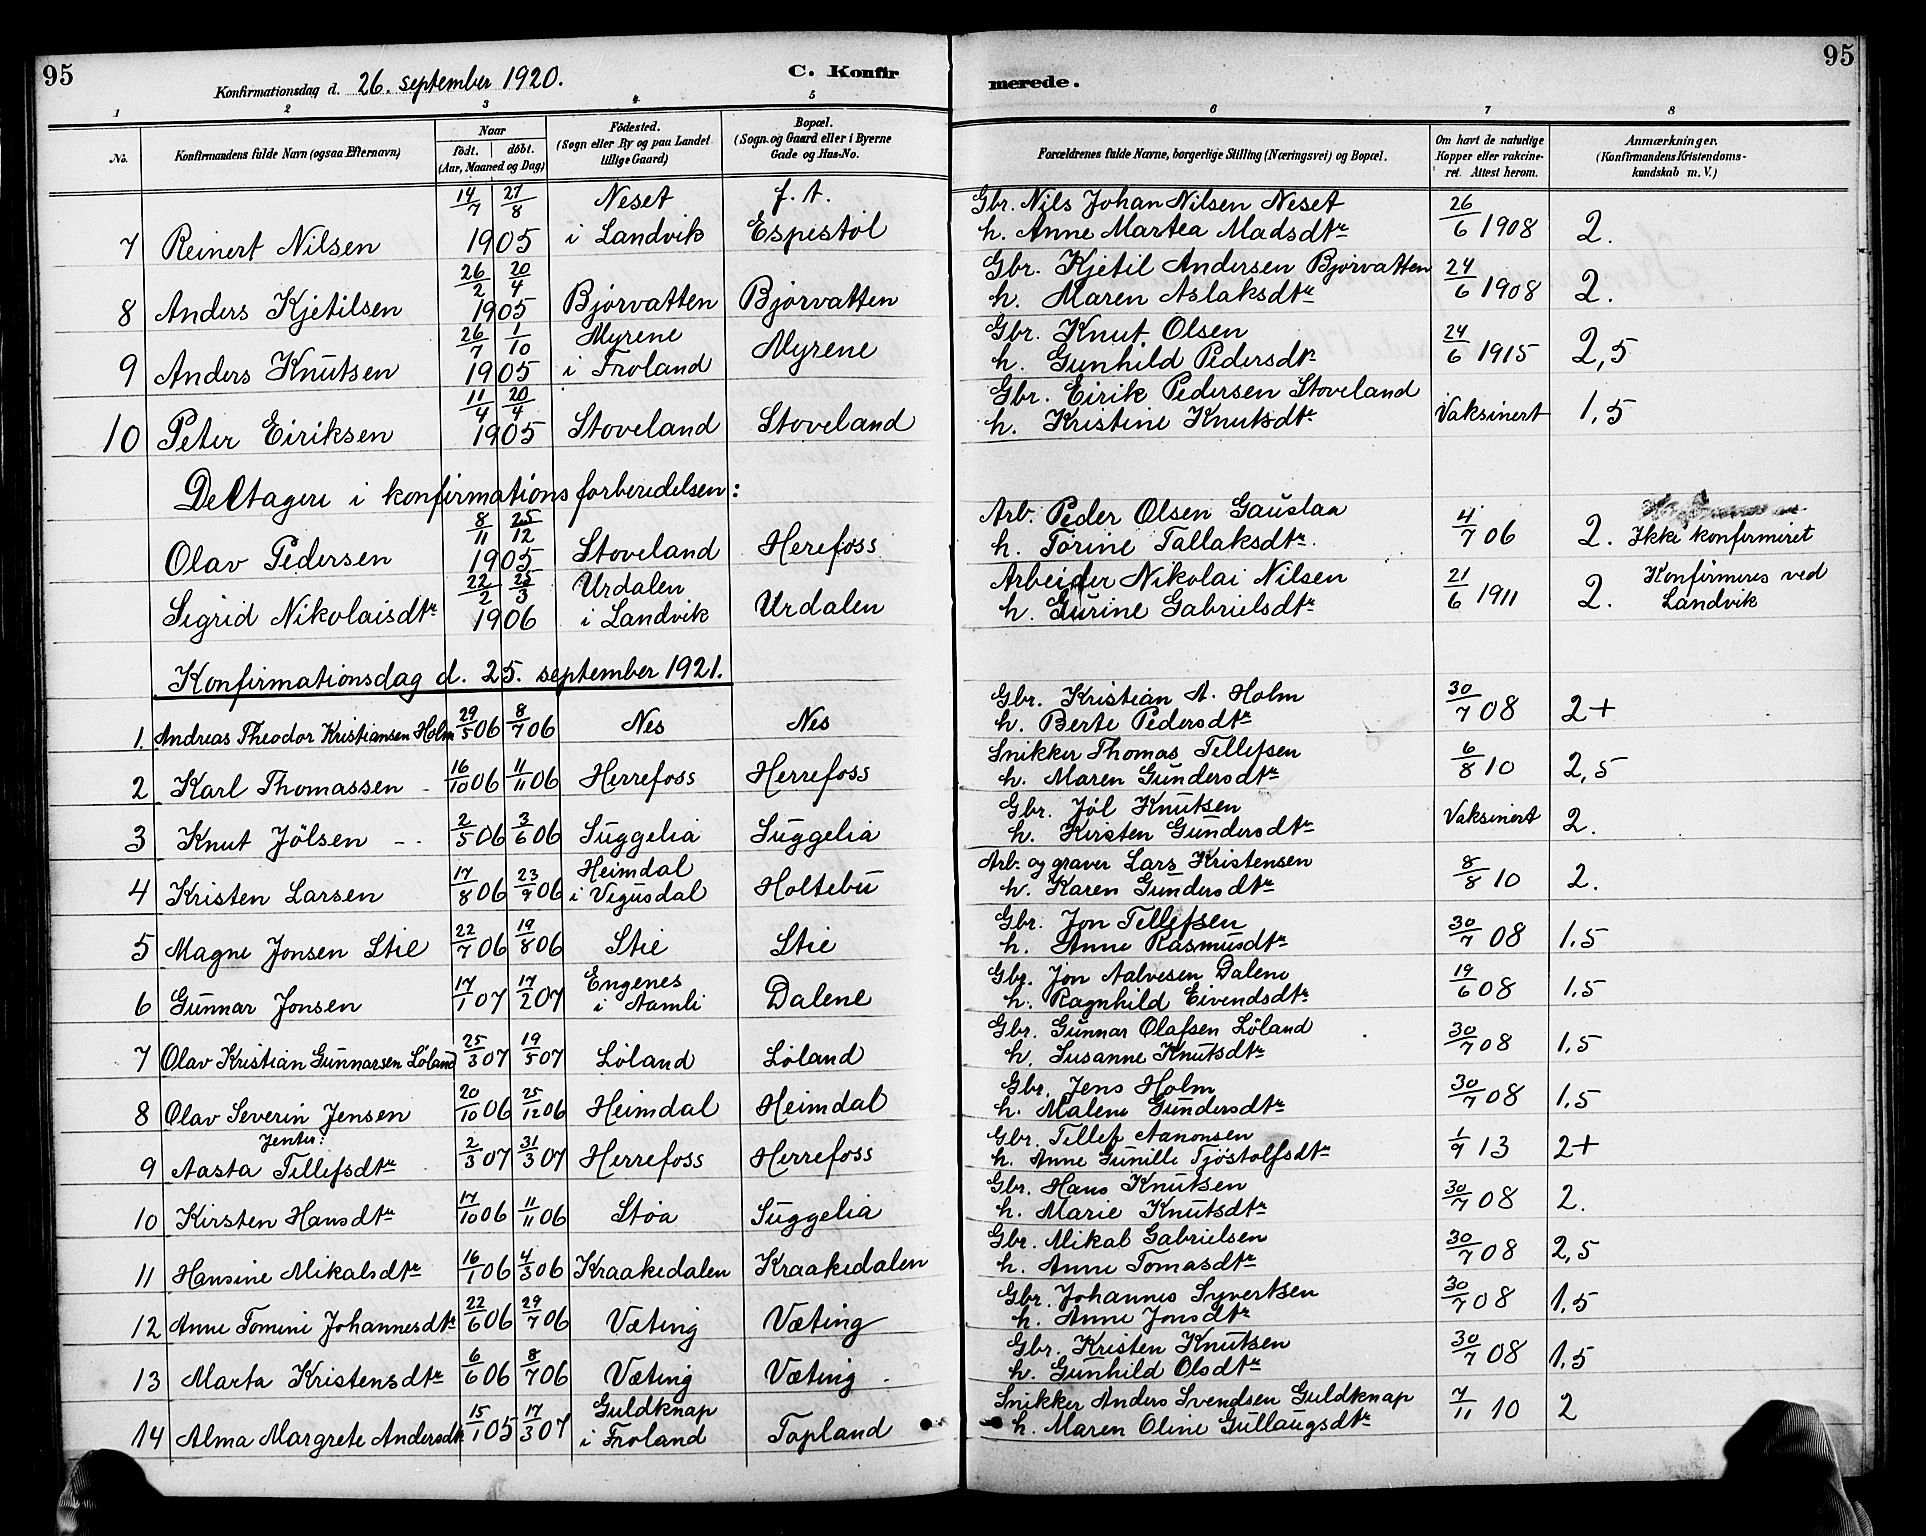 95
Konfirmationsdag d. 26. september 1920.
C. Konfir
merede.
95
1 2 3 4 5 6 7 8
No.
Konfirmandens fulde Navn (ogsaa Efternavn)
Naar
født. døbt.
(Aar, Maaned og Dag)
Fødested.
(Sogn eller By og paa Landet
tillige Gaard)
Bopæl.
(Sogn og Gaard eller i Byerne
Gade og Hus-No.
Forældrenes fulde Navne, borgerlige Stilling (Næringsvei) og Bopæl.
Om havt de naturlige
Kopper eller vakcine-
ret. Attest herom.
Anmærkninger.
(Konfirmandens Kristendoms-
kundskab m. V.)
14/7 27/8 Neset f. t. Gbr. Nils Johan Nilsen Neset
7 Reinert Nilsen 1905 i Landvik Espestøl h. Anne Martea Madsdtr 26/6 1908 2.
26/2 20/4 Gbr. Kjetil Andersen Bjørvatten
8 Anders Kjetilsen 1905 Bjørvatten Bjørvatten h. Maren Aslaksdtr 24/6 1908 2.
26/7 1/10 Myrene Gbr. Knut Olsen
9 Anders Knutsen 1905 i Froland Myrene h. Gunhild Pedersdtr 24/6 1915 2,5
11/4 20/4 Gbr. Eirik Pedersen Stoveland
10 Peter Eiriksen 1905 Stoveland Stoveland h. Kristine Knutsdtr Vaksinert 1,5
Deltagere i konfirmationsforberedelsen:
8/11 25/12 Arb. Peder Olsen Gauslaa
Olav Pedersen 1905 Stoveland Herefoss h. Torine Tallaksdtr. 4/7 06 2. Ikke konfirmeret
22/2 25/3 Urdalen Arbeider Nikolai Nilsen Konfirmeres ved
Sigrid Nikolaisdtr 1906 i Landvik Urdalen h. Gurine Gabrielsdtr 21/6 1911 2. Landvik
Konfirmationsdag d. 25. september 1921.
Gbr. Kristian A. Holm
1. Andreas Theodor Kristiansen Holm 29/5 06 8/7 06 Nes Nes h. Berte Pedersdtr 30/7 08 2+
Snikker Thomas Tellefsen
2 Karl Thomassen 16/10 06 11/11 06 Herrefoss Herrefoss h. Maren Gundersdtr 6/8 10 2,5
Gbr. Jøl Knutsen
3 Knut Jølsen 2/5 06 3/6 06 Suggelia Suggelia h. Kirsten Gundersdtr Vaksinert 2.
Heimdal Arb. og graver Lars Kristensen
4 Kristen Larsen 17/8 06 23/9 06 i Vegusdal Holtebu h. Karen Gundersdtr 8/8 10 2.
Gbr. Jon Tellefsen
5 Magne Jonsen Stie 22/7 06 19/8 06 Stie Stie h. Anne Rasmusdtr 30/7 08 1,5
Engenes Gbr. Jon Aalvesen Dalene
6 Gunnar Jonsen 17/1 07 17/2 07 i Aamli Dalene h. Ragnhild Eivendsdtr 19/6 08 1,5
Gbr. Gunnar Olafsen Løland
7 Olav Kristian Gunnarsen Løland 25/3 07 19/5 07 Løland Løland h. Susanne Knutsdtr 30/7 08 1,5
Gbr. Jens Holm
8 Olav Severin Jensen 20/10 06 25/12 06 Heimdal Heimdal h. Malene Gundersdtr 30/7 08 1,5
Jenter: Gbr. Tellef Aanonsen
9 Aasta Tellefsdtr 2/3 07 31/3 07 Herrefoss Herrefoss h. Anne Gunille Tjøstolfsdtr 1/9 13 2+
Gbr. Hans Knutsen
10 Kirsten Hansdtr 17/10 06 11/11 06 Støa Suggelia h. Marie Knutsdtr 30/7 08 2.
Gbr. Mikal Gabrielsen
11 Hansine Mikalsdtr 16/1 06 4/3 06 Kraakedalen Kraakedalen h. Anne Tomasdtr 30/7 08 2,5
Gbr. Johannes Syvertsen
12 Anne Tomine Johannesdtr 22/6 06 29/7 06 Væting Væting h. Anne Jonsdtr 30/7 08 1,5
Gbr. Kristen Knutsen
13 Marta Kristensdtr 6/6 06 8/7 06 Væting Væting h. Gunhild Olsdtr 30/7 08 1,5
Guldknap Snikker Anders Svendsen Guldknap
14 Alma Margrete Andersdtr 15/1 05 17/3 07 i Froland Topland h. Maren Oline Gullaugsdtr 7/11 10 2